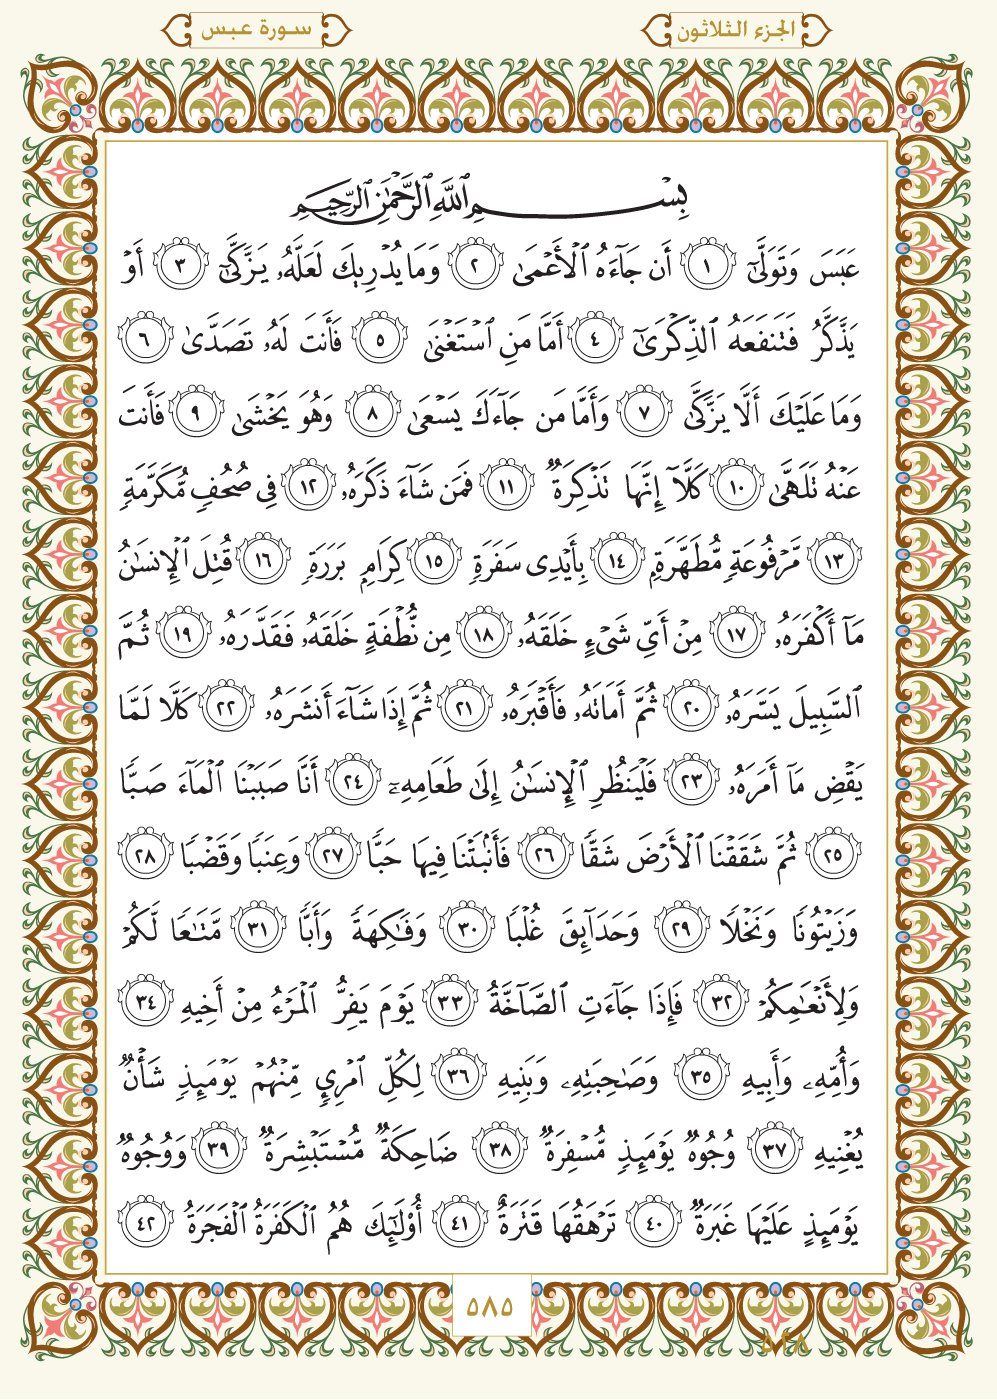 سورة عبس
الجزء الثلاثون
بِسْمِ اللَّهِ الرَّحْمَٰنِ الرَّحِيمِ
عَبَسَ وَتَوَلَّىٰٓ ١ أَن جَآءَهُ ٱلْأَعْمَىٰ ٢ وَمَا يُدْرِيكَ لَعَلَّهُۥ يَزَّكَّىٰٓ ٣ أَوْ
يَذَّكَّرُ فَتَنفَعَهُ ٱلذِّكْرَىٰٓ ٤ أَمَّا مَنِ ٱسْتَغْنَىٰ ٥ فَأَنتَ لَهُۥ تَصَدَّىٰ ٦
وَمَا عَلَيْكَ أَلَّا يَزَّكَّىٰ ٧ وَأَمَّا مَن جَآءَكَ يَسْعَىٰ ٨ وَهُوَ يَخْشَىٰ ٩ فَأَنتَ
عَنْهُ تَلَهَّىٰ ١٠ كَلَّآ إِنَّهَا تَذْكِرَةٌ ١١ فَمَن شَآءَ ذَكَرَهُۥ ١٢ فِى صُحُفٍ مُّكَرَّمَةٍ
١٣ مَّرْفُوعَةٍ مُّطَهَّرَةٍۭ ١٤ بِأَيْدِى سَفَرَةٍ ١٥ كِرَامٍۭ بَرَرَةٍ ١٦ قُتِلَ ٱلْإِنسَٰنُ
مَآ أَكْفَرَهُۥ ١٧ مِنْ أَىِّ شَىْءٍ خَلَقَهُۥ ١٨ مِن نُّطْفَةٍ خَلَقَهُۥ فَقَدَّرَهُۥ ١٩ ثُمَّ
ٱلسَّبِيلَ يَسَّرَهُۥ ٢٠ ثُمَّ أَمَاتَهُۥ فَأَقْبَرَهُۥ ٢١ ثُمَّ إِذَا شَآءَ أَنشَرَهُۥ ٢٢ كَلَّا لَمَّا
يَقْضِ مَآ أَمَرَهُۥ ٢٣ فَلْيَنظُرِ ٱلْإِنسَٰنُ إِلَىٰ طَعَامِهِۦٓ ٢٤ أَنَّا صَبَبْنَا ٱلْمَآءَ صَبًّا
٢٥ ثُمَّ شَقَقْنَا ٱلْأَرْضَ شَقًّا ٢٦ فَأَنۢبَتْنَا فِيهَا حَبًّا ٢٧ وَعِنَبًا وَقَضْبًا ٢٨
وَزَيْتُونًا وَنَخْلًا ٢٩ وَحَدَآئِقَ غُلْبًا ٣٠ وَفَٰكِهَةً وَأَبًّا ٣١ مَّتَٰعًا لَّكُمْ
وَلِأَنْعَٰمِكُمْ ٣٢ فَإِذَا جَآءَتِ ٱلصَّآخَّةُ ٣٣ يَوْمَ يَفِرُّ ٱلْمَرْءُ مِنْ أَخِيهِ ٣٤
وَأُمِّهِۦ وَأَبِيهِ ٣٥ وَصَٰحِبَتِهِۦ وَبَنِيهِ ٣٦ لِكُلِّ ٱمْرِئٍ مِّنْهُمْ يَوْمَئِذٍ شَأْنٌ
يُغْنِيهِ ٣٧ وُجُوهٌ يَوْمَئِذٍ مُّسْفِرَةٌ ٣٨ ضَاحِكَةٌ مُّسْتَبْشِرَةٌ ٣٩ وَوُجُوهٌ
يَوْمَئِذٍ عَلَيْهَا غَبَرَةٌ ٤٠ تَرْهَقُهَا قَتَرَةٌ ٤١ أُو۟لَٰٓئِكَ هُمُ ٱلْكَفَرَةُ ٱلْفَجَرَةُ ٤٢
٥٨٥